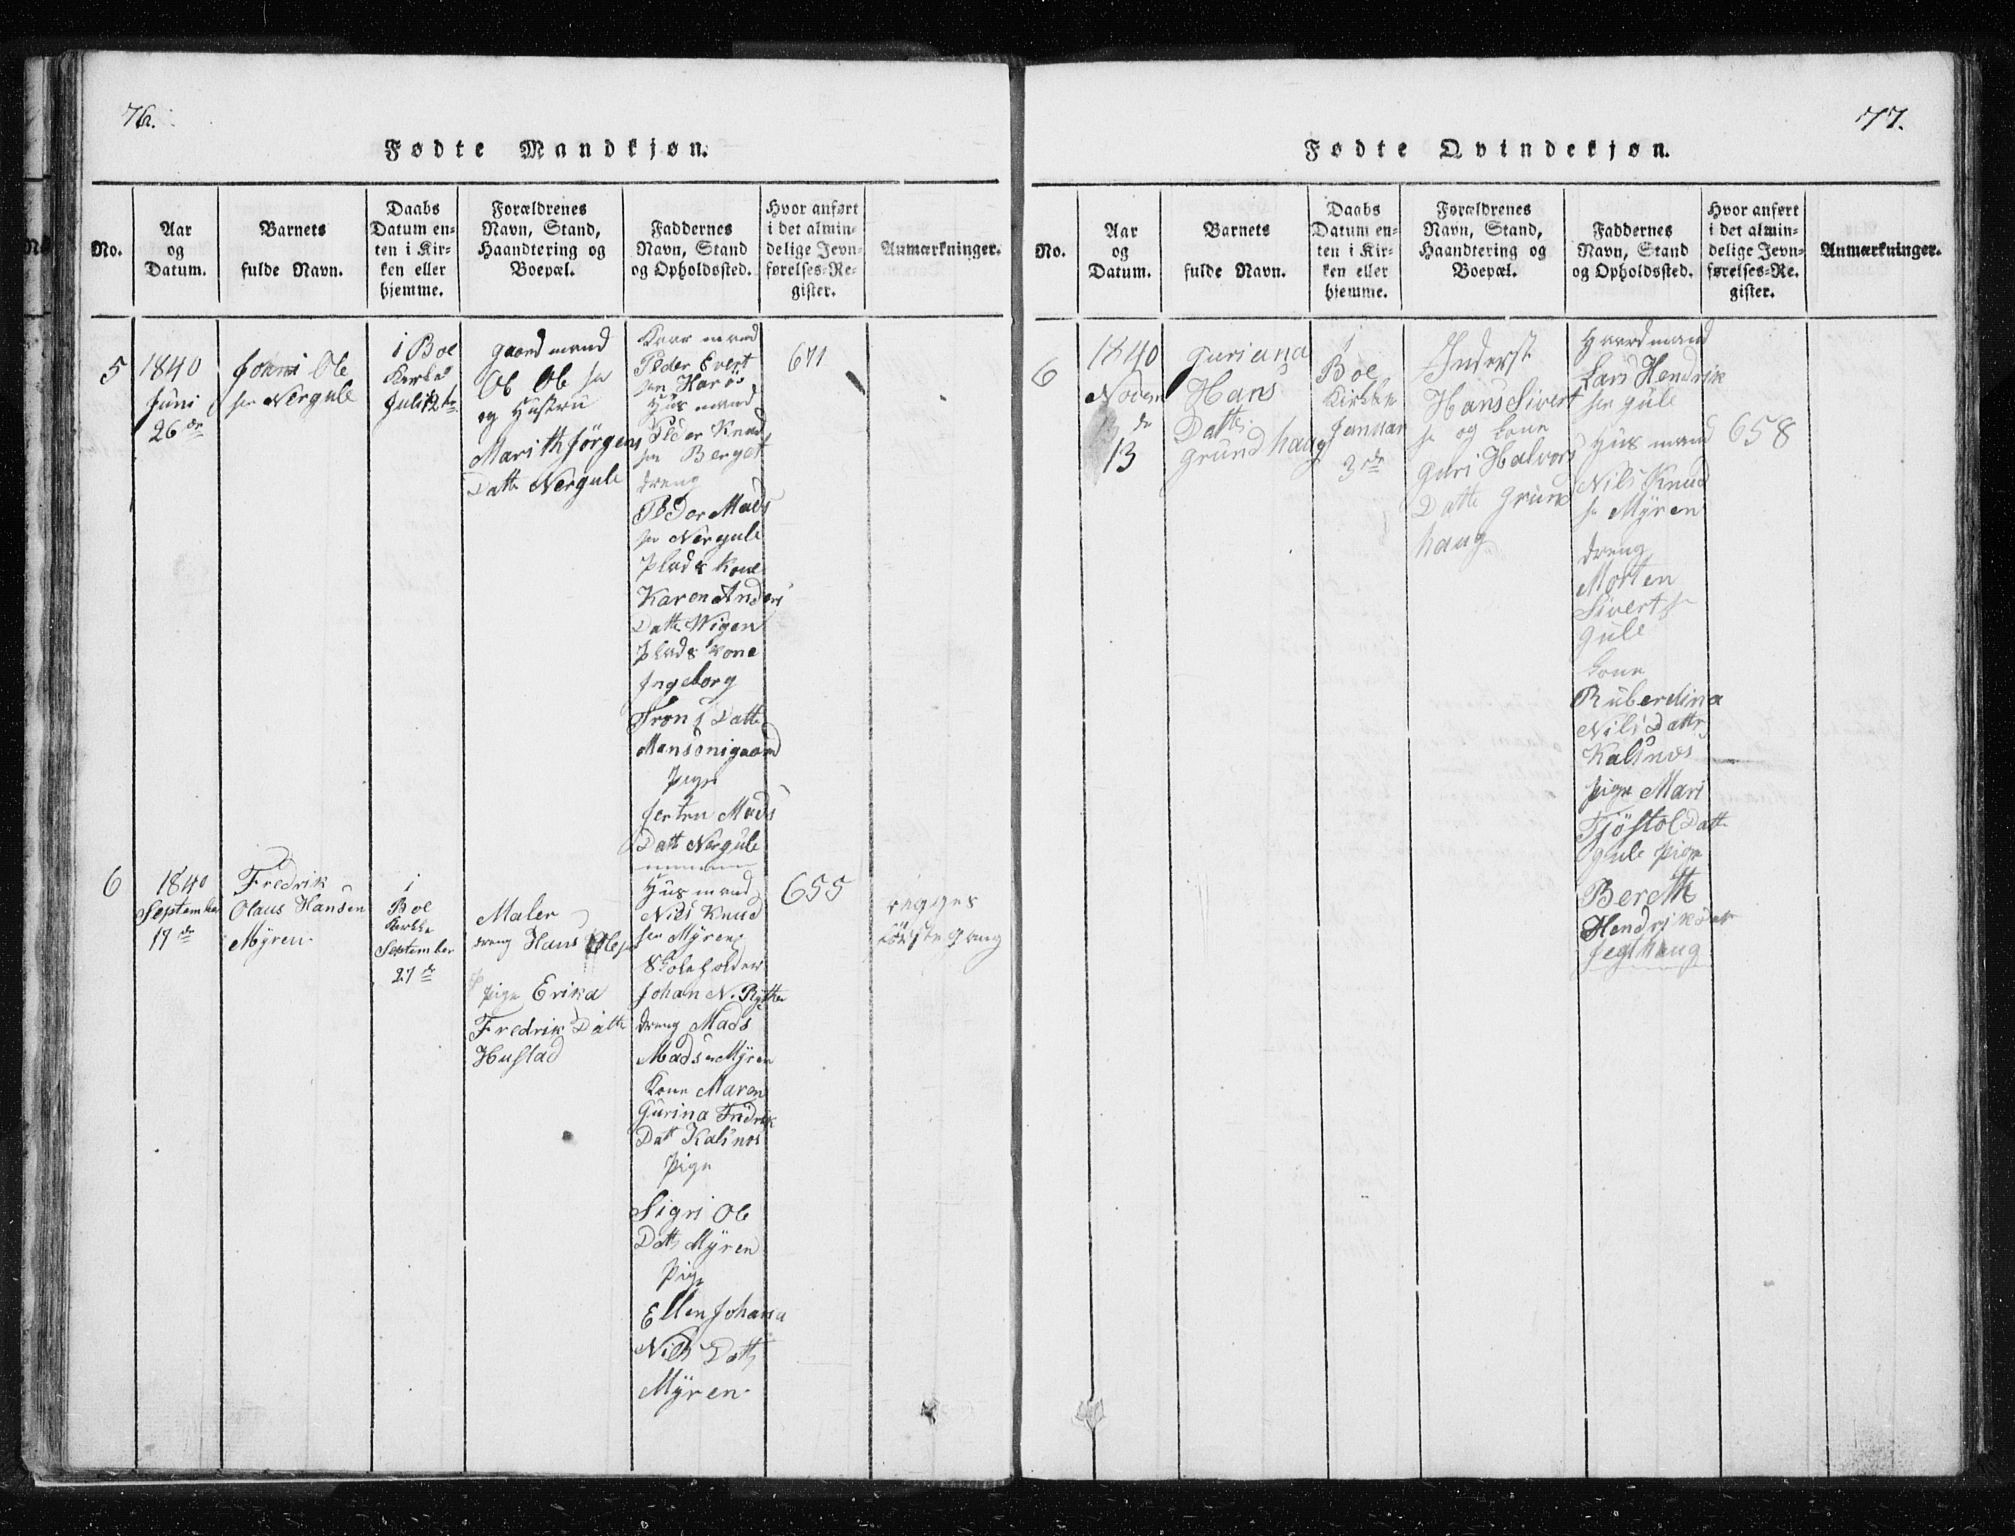 76.
Fødte Mandkjøn.
No.
Aar
og
Datum.
Barnets
fulde Navn.
Daabs
Datum en-
ten i Kir-
ken eller
hjemme.
Forældrenes
Navn, Stand,
Haandtering og
Boepæl.
Faddernes
Navn, Stand
og Opholdssted.
Hvor anført
i det almin-
delige Jevn-
førelses-Re-
gister.
Anmærkninger.
5
1840
Juni
26de
Ole
sen Nergule
i Boe
Kirke
Juli 12te
gaard mand
Ole Ole sen
og Hustru
Marith Jörgens
Datte Nergule
mand
Peder Evert
sen
Hus mand
Peder Knud
sen Berget
dreng
Peder Mads
sen Nergule
Plads kone
Karen Anders
Datte Wigen
Plads kone
Ingeborg
Trons Datte
Pige
Mads
Datt Nergule
671
6
1840
September
17de
Fredrik
Olaus Hansen
Myren
i
Boe
Kirke
September
27de
Maler
dreng Hans Ole
pige Erika
Fredrik Datte
Hustad
Hus mand
Nils Knud
sen Myren
Skoleholder
Johan N. Rytter
dreng Mads
Madsen Myren
Kone Maren
Gurina Fridrik
Datt Kalsnes
Pige
Sigri Ole
Datt Myren
Pige
Ellen Johana
Nils Datt
Myren
655
begges
förste gang
77.
Fødte Qvindekjøn.
No.
Aar
og
Datum.
Barnets
fulde Navn.
Daabs
Datum en-
ten i Kir-
ken eller
hjemme.
Forældrenes
Navn, Stand,
Haandtering og
Boepæl.
Faddernes
Navn, Stand
og Opholdssted.
Hvor anført
i det almin-
delige Jevn-
førelses-Re-
gister.
Anmærkninger.
6
1840
Novem
de
13
Guriana
Hans
Datte
Grundhaug
i
Boe
Kirke
Januar
3de
Inderst
Hans Sivert
sen og kone
Guri Halvors
Datte Grund
haug
Gaardmand
Lars Hendrik
sen Gule
Hus mand
Nils Knud
sen Myren
dreng
Morten
Sivertsen
Gule
kone
Ruberdina
Nils Datte
Kalsnes
pige Mari
Tjöstol Datt
Gule Pige
Bereth
Hendrik Datt
haug
658